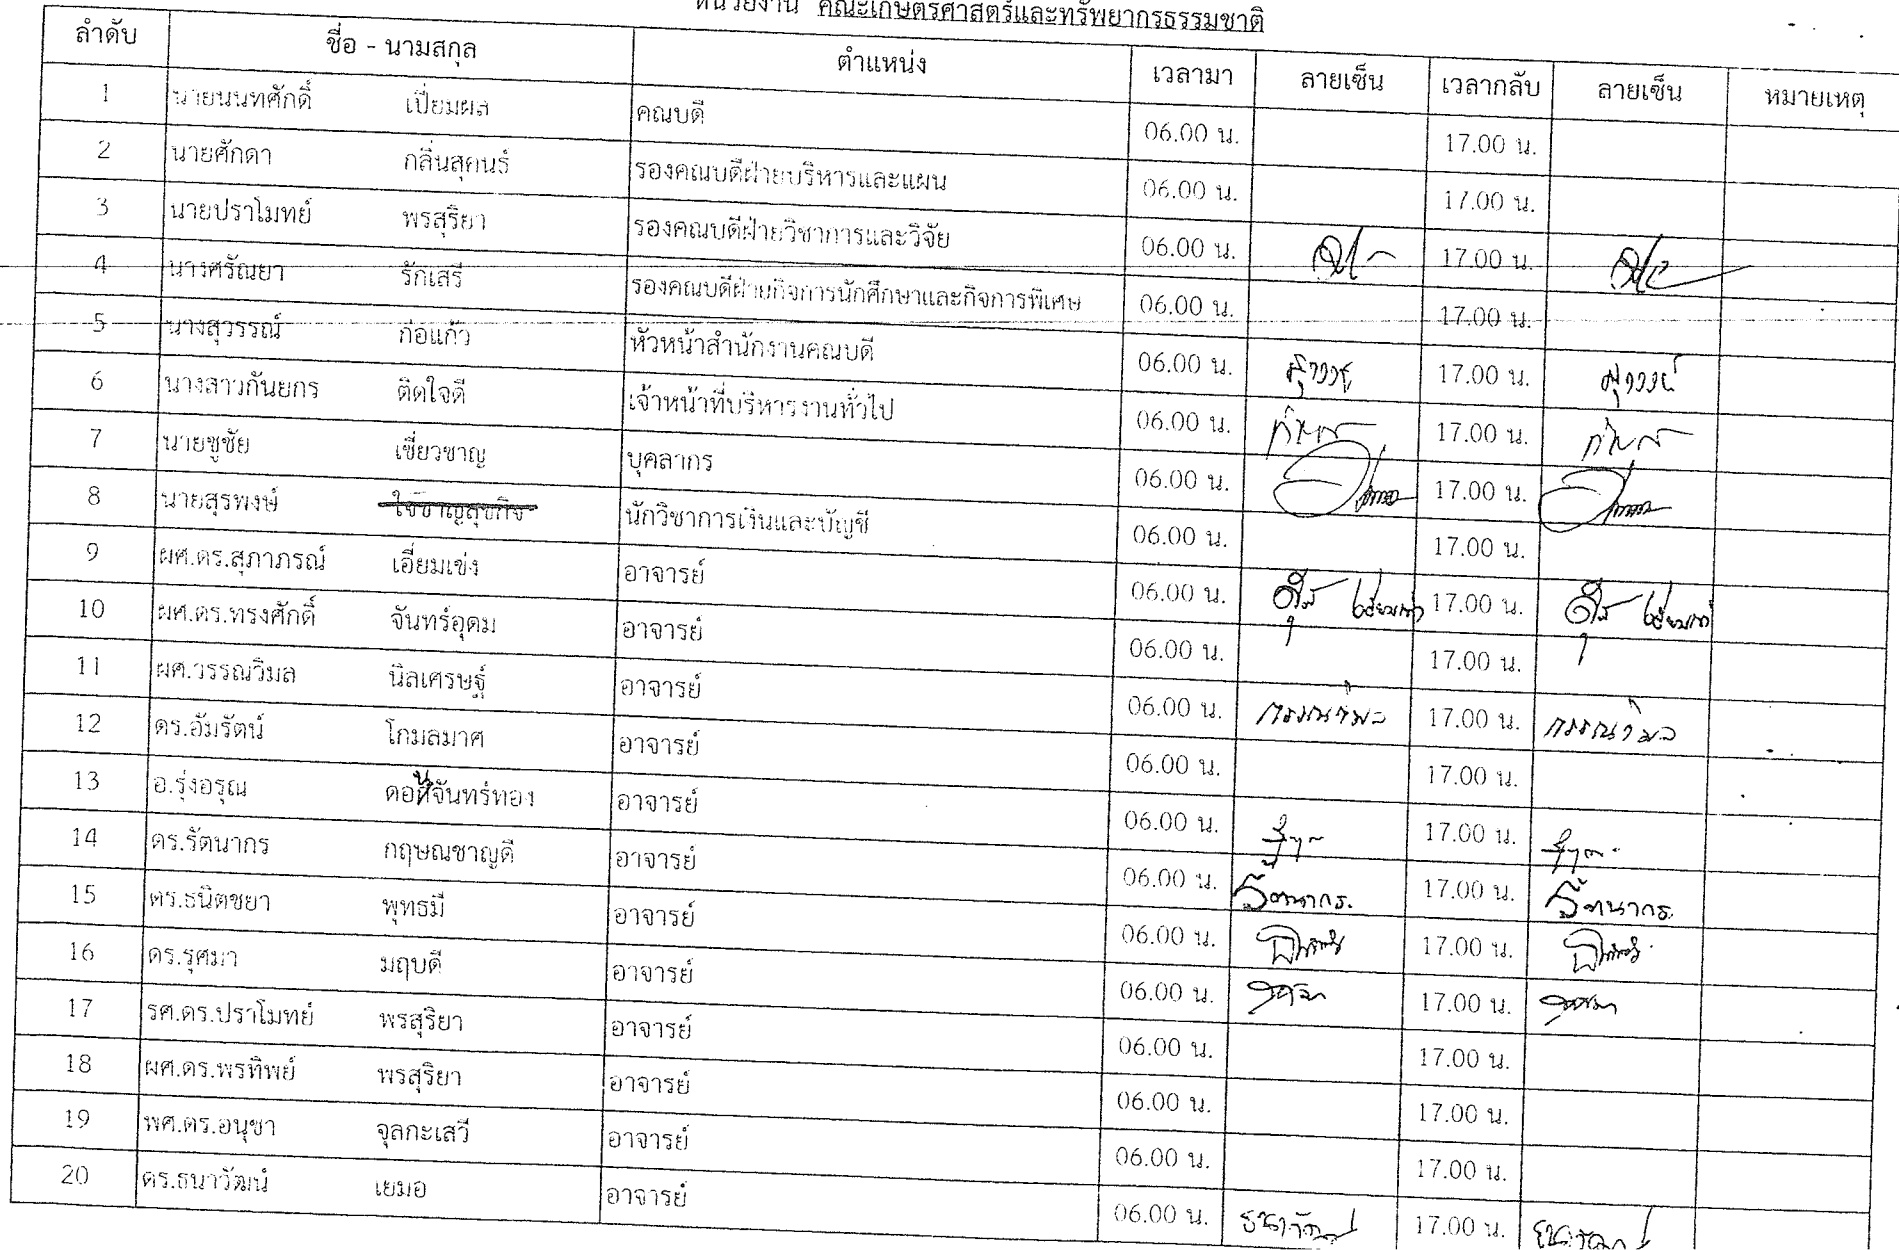 หน่วยงาน คณะเกษตรศาสตร์และทรัพยากรธรรมชาติ
ลำดับ ชื่อ - นามสกุล ตำแหน่ง เวลามา ลายเซ็น เวลากลับ ลายเซ็น หมายเหตุ
1 นายนนทศักดิ์ เปี่ยมผล คณบดี 06.00 น. 17.00 น.
2 นายศักดา กลิ่นสุคนธ์ รองคณบดีฝ่ายบริหารและแผน 06.00 น. 17.00 น.
3 นายปราโมทย์ พรสุริยา รองคณบดีฝ่ายวิชาการและวิจัย 06.00 น. 17.00 น.
4 นางศรัณยา รักเสรี รองคณบดีฝ่ายกิจการนักศึกษาและกิจการพิเศษ 06.00 น. 17.00 น.
5 นางสุวรรณ์ ก่อแก้ว หัวหน้าสำนักงานคณบดี 06.00 น. 17.00 น.
6 นางสาวกันยกร ติดใจดี เจ้าหน้าที่บริหารงานทั่วไป 06.00 น. 17.00 น.
7 นายชูชัย เชี่ยวชาญ บุคลากร 06.00 น. 17.00 น.
8 นายสุรพงษ์ นักวิชาการเงินและบัญชี 06.00 น. 17.00 น.
9 ผศ.ดร.สุภาภรณ์ เอี่ยมเข่ง อาจารย์ 06.00 น. 17.00 น.
10 ผศ.ดร.ทรงศักดิ์ จันทร์อุดม อาจารย์ 06.00 น. 17.00 น.
11 ผศ.วรรณวิมล นิลเศรษฐ์ อาจารย์ 06.00 น. วรรณวิมล 17.00 น. วรรณวิมล
12 ดร.อัมรัตน์ โกมลมาศ อาจารย์ 06.00 น. 17.00 น.
13 อ.รุ่งอรุณ ดอนจันทร์ทอง อาจารย์ 06.00 น. 17.00 น.
14 ดร.รัตนากร กฤษณชาญดี อาจารย์ 06.00 น. รัตนากร. 17.00 น. รัตนากร.
15 ดร.ธนิตชยา พุทธมี อาจารย์ 06.00 น. 17.00 น.
16 ดร.รุศมา มฤบดี อาจารย์ 06.00 น. รุศมา 17.00 น. รุศมา
17 รศ.ดร.ปราโมทย์ พรสุริยา อาจารย์ 06.00 น. 17.00 น.
18 ผศ.ดร.พรทิพย์ พรสุริยา อาจารย์ 06.00 น. 17.00 น.
19 ผศ.ดร.อนุชา จุลกะเสวี อาจารย์ 06.00 น. 17.00 น.
20 ดร.ธนาวัฒน์ เยมอ อาจารย์ 06.00 น. ธนาวัฒน์ 17.00 น. ธนาวัฒน์